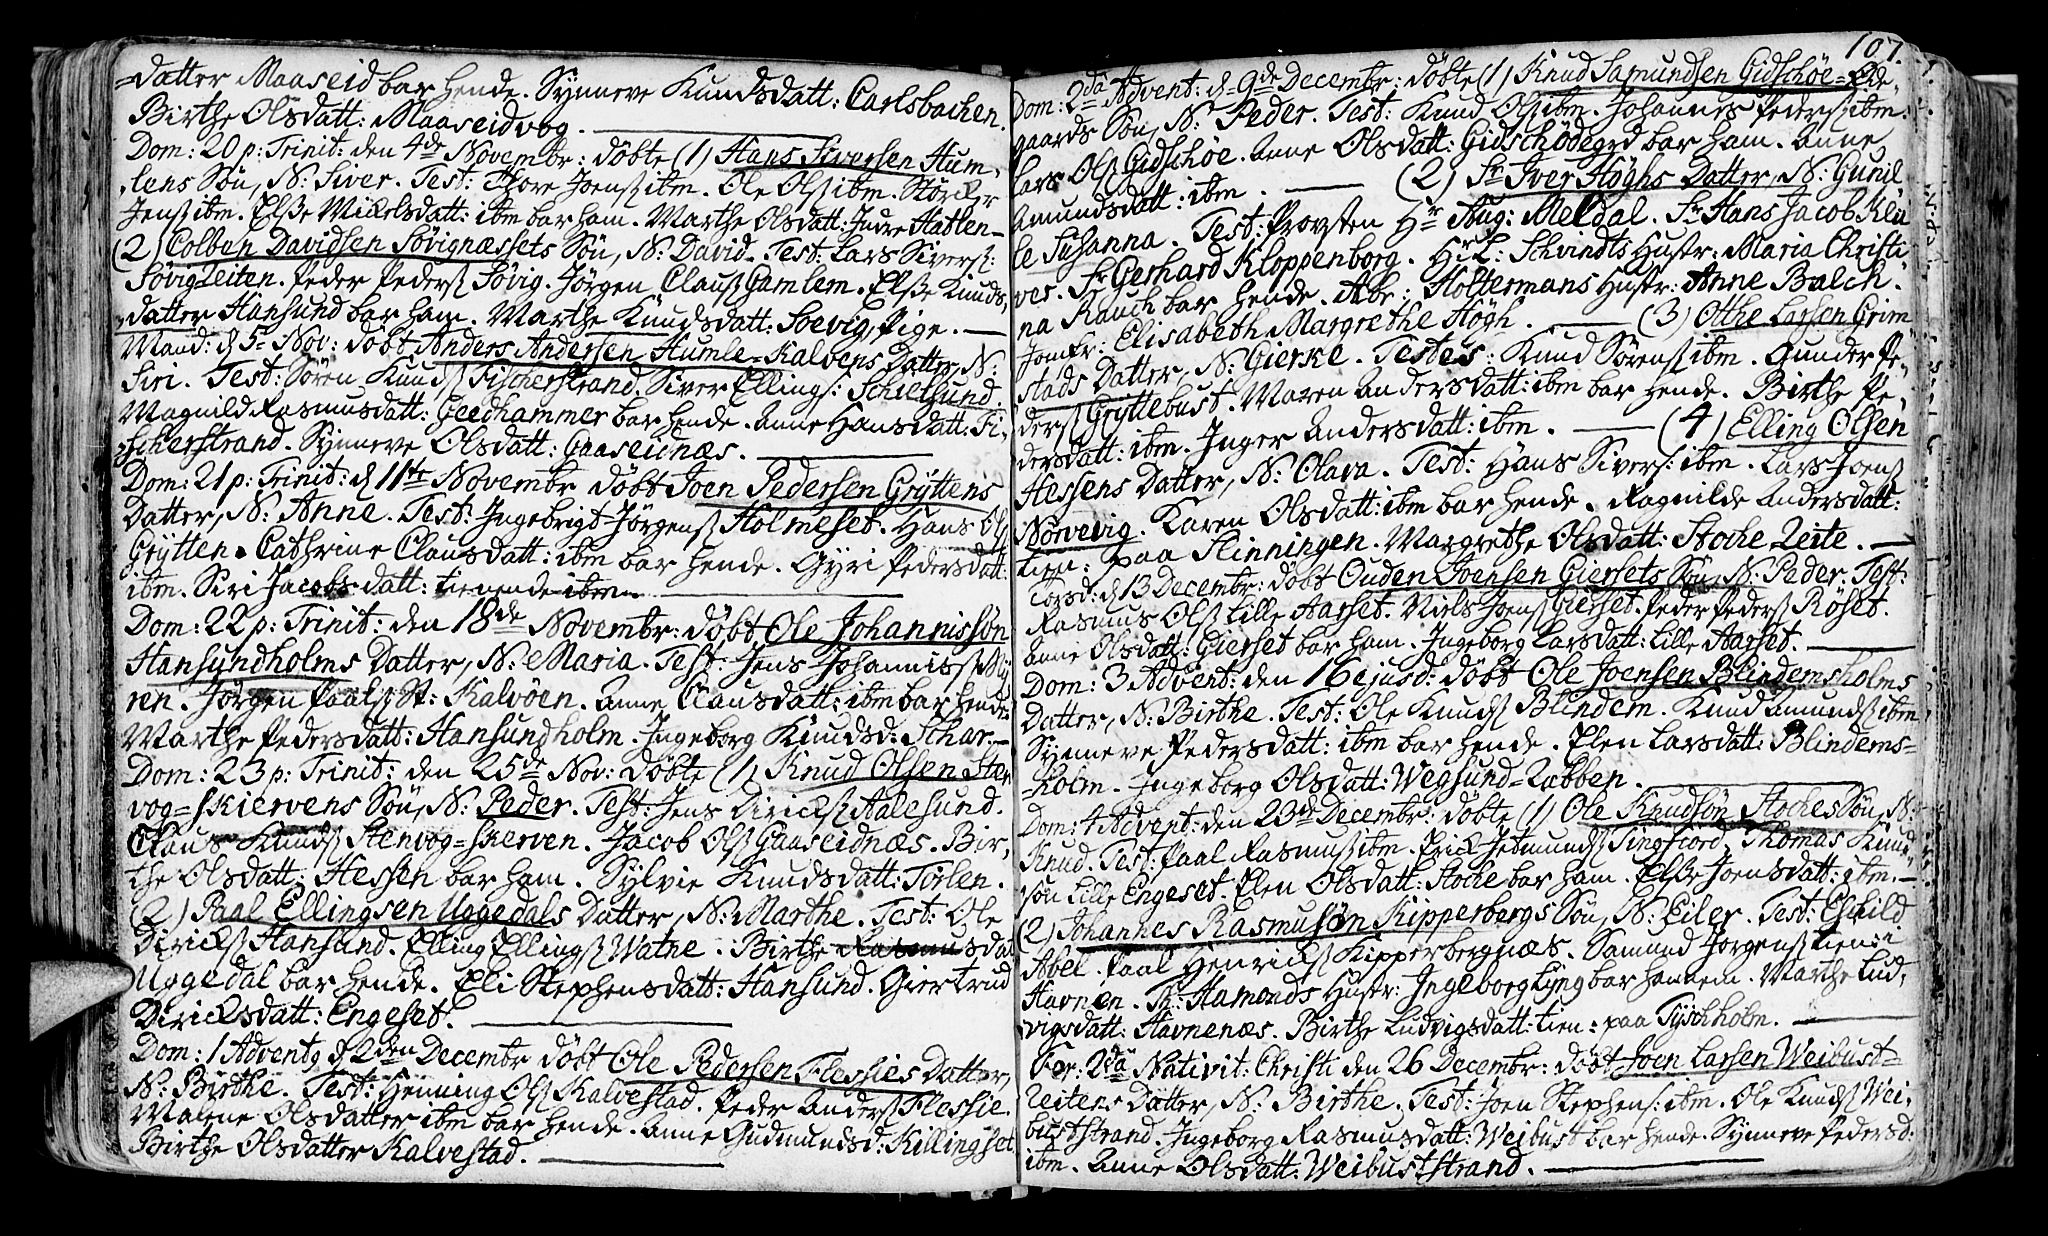 =datter Maaseid bar hende. Synneve Knudsdatt: Carlsbachen.
Birthe Olsdatt: Maaseidvog.
Dom: 20 p: Trinit: den 4de Novembr: døbte (1) Hans Siversen Hum,
lens Søn, N: Siver. Test: Thore Joens ibm. Ole Ols ibm. Størcker
Jens ibm. Elsse Mickelsdatt: ibm bar ham. Marthe Olsdatt: Indre Hatlen
(2) Colben Davidsen Søvignæssets Søn, N: David. Test: Lars Sivers:
Søvig Leiten. Peder Peders Søvig. Jørgen Claus Gamlem. Elsse Knuds,
datter Hansund bar ham. Marthe Knudsdatt: Soevig, Pige.
Mand: d 5te Nov: døbt Anders Andersen Humle=Kalvens Datter, N:
Siri. Test: Søren Knuds Fischerstrand. Siver Ellings: Schielsund.
Magnild Rasmusdatt: Geedhammer bar hende. Anne Hansdatt: Fi,
scherstrand. Synneve Olsdatt: Gaaseidnæs.
Dom: 21 p: Trinit: d 11te Novembr døbt Joen Pedersen Gryttens
Datter, N: Anne. Test: Ingebrigt Jørgens Holmeset. Hans Ols
Grytten. Cathrine Clausdatt: ibm bar hende. Gyri Pedersdatt:
ibm. Siri Jacobsdatt: tienende ibm.
Dom: 22 p: Trinit: den 18de Novembr: døbt Ole Johannissøn
Hansundholms Datter, N: Maria. Test: Jens Johanniss Myl
ren. Jørgen Paals St: Kalvøen. Anne Clausdatt: ibm bar hende
Marthe Pedersdatt: Hansundholm. Ingeborg Knudsd: Schar.
Dom: 23 p: Trinit: den 25de Nov: døbte (1) Knud Olsen Sten
vog=skiervens Søn, N: Peder. Test: Jens Diricks Aalesund.
Claus Knuds Stenvog=skierven. Jacob Ols Gaaseidnæs. Bir,
the Olsdatt: Hessen bar ham. Sylvie Knudsdatt: Torlen.
(2) Paal Ellingsen Uggedals Datter, N: Marthe. Test: Ole
Diricks Hansund. Elling Ellings Watne. Birthe Rasmusdat
Uggedal bar hende. Eli Stephensdatt: Hansund. Giertrud
Diricksdatt: Engeset.
Dom: 1 Advent, d 2den Decembr døbt Ole Pedersen Flessies Datter,
N: Birthe. Test: Henning Ols Kalvestad. Peder Anders Flessie.
Malene Olsdatter ibm bar hende. Anne Gudmundsd: Killingset
Birthe Olsdatter Kalvestad.
107.
Dom: 2da Advent: d 9de Decembr: døbte (1) Knud Samundsen Gidschøe=Øde,
gaards Søn, N: Peder. Test: Knud Ols ibm. Johannes Peders ibm.
Lars Ols Gidschøe. Anne Olsdatt: Gidschødegrd bar ham. Anne
Amundsdatt: ibm. (2) Sr Iver Høghs Datter, N: Gunil
le Susanna. Test: Provsten Hr Aug: Meldal. Sr Hans Jacob Klü
ver. Sr Gerhard Kloppenborg. Hr L: Schvindts Hustr: Maria Christi
na Rauch bar hende. Abr: Holtermans Hustr: Anne Balch.
Jomfr: Elisabeth Margrethe Høgh. (3) Otthe Larsen Grim
stads Datter, N: Gierke. Testes: Knud Sørens ibm. Gunder Pe,
ders Gryttebust. Maren Andersdatt: ibm bar hende. Birthe Pe,
dersdatt: ibm. Inger Andersdatt: ibm. (4) Elling Olsen
Hessens Datter, N: Olava. Test: Hans Sivers: ibm. Lars Joens
Nørvevig. Karen Olsdatt: ibm bar hende. Ragnilde Andersdatt:
tien: paa Slinningen. Margrethe Olsdatt: Stoche Leite.
Torsd: d 13 Decembr: døbt Ouden Joensen Giersets Søn, N: Peder. Test:
Rasmus Ols Lille Aarset. Niels Joens Gierset. Peder Peders Røset.
Anne Olsdatt: Gierset bar ham. Ingeborg Larsdatt: Lille Aarset.
Dom: 3 Advent: den 16 ejusd: døbt Ole Joensen Blindemsholms
Datter, N: Birthe. Test: Ole Knuds Blindem. Knud Amunds ibm,
Synneve Pedersdatt: ibm bar hende. Elen Larsdatt: Blindems=
holm. Ingeborg Olsdatt: Wegsund=Labben.
Dom: 4 Advent: den 23de Decembr: døbte (1) Ole Knudsøn Stoches Søn, N:
Knud. Test: Paal Rasmus ibm. Erick Jetmunds Tingfiord. Thomas Knud
søn Lille Engeset. Elen Olsdatt: Stoche bar ham. Elsse Joensdatt: ibm.
(2) Johannes Rasmusøn Kipperbergs Søn, N: Eiler. Test: Eschild
Abel. Paal Henricks Kipperbergnæs. Samund Jørgens tien: i
Havnen. Th: Hamonds Hustr: Ingeborg Lyng bar hannem. Marthe Lud,
vigsdatt: Havnenæs. Birthe Ludvigsdatt: tien: paa Tyschholm.
Fer: 2da Nativit: Christi den 26 Decembr: døbt Joen Larsen Weibust=
Leitens Datter, N: Birthe. Test: Joen Stephens: ibm. Ole Knuds Wei,
buststrand. Ingeborg Rasmusdatt: Weibust bar hende. Synneve Pedersd:
ibm. Anne Olsdatt: Weibuststrand.